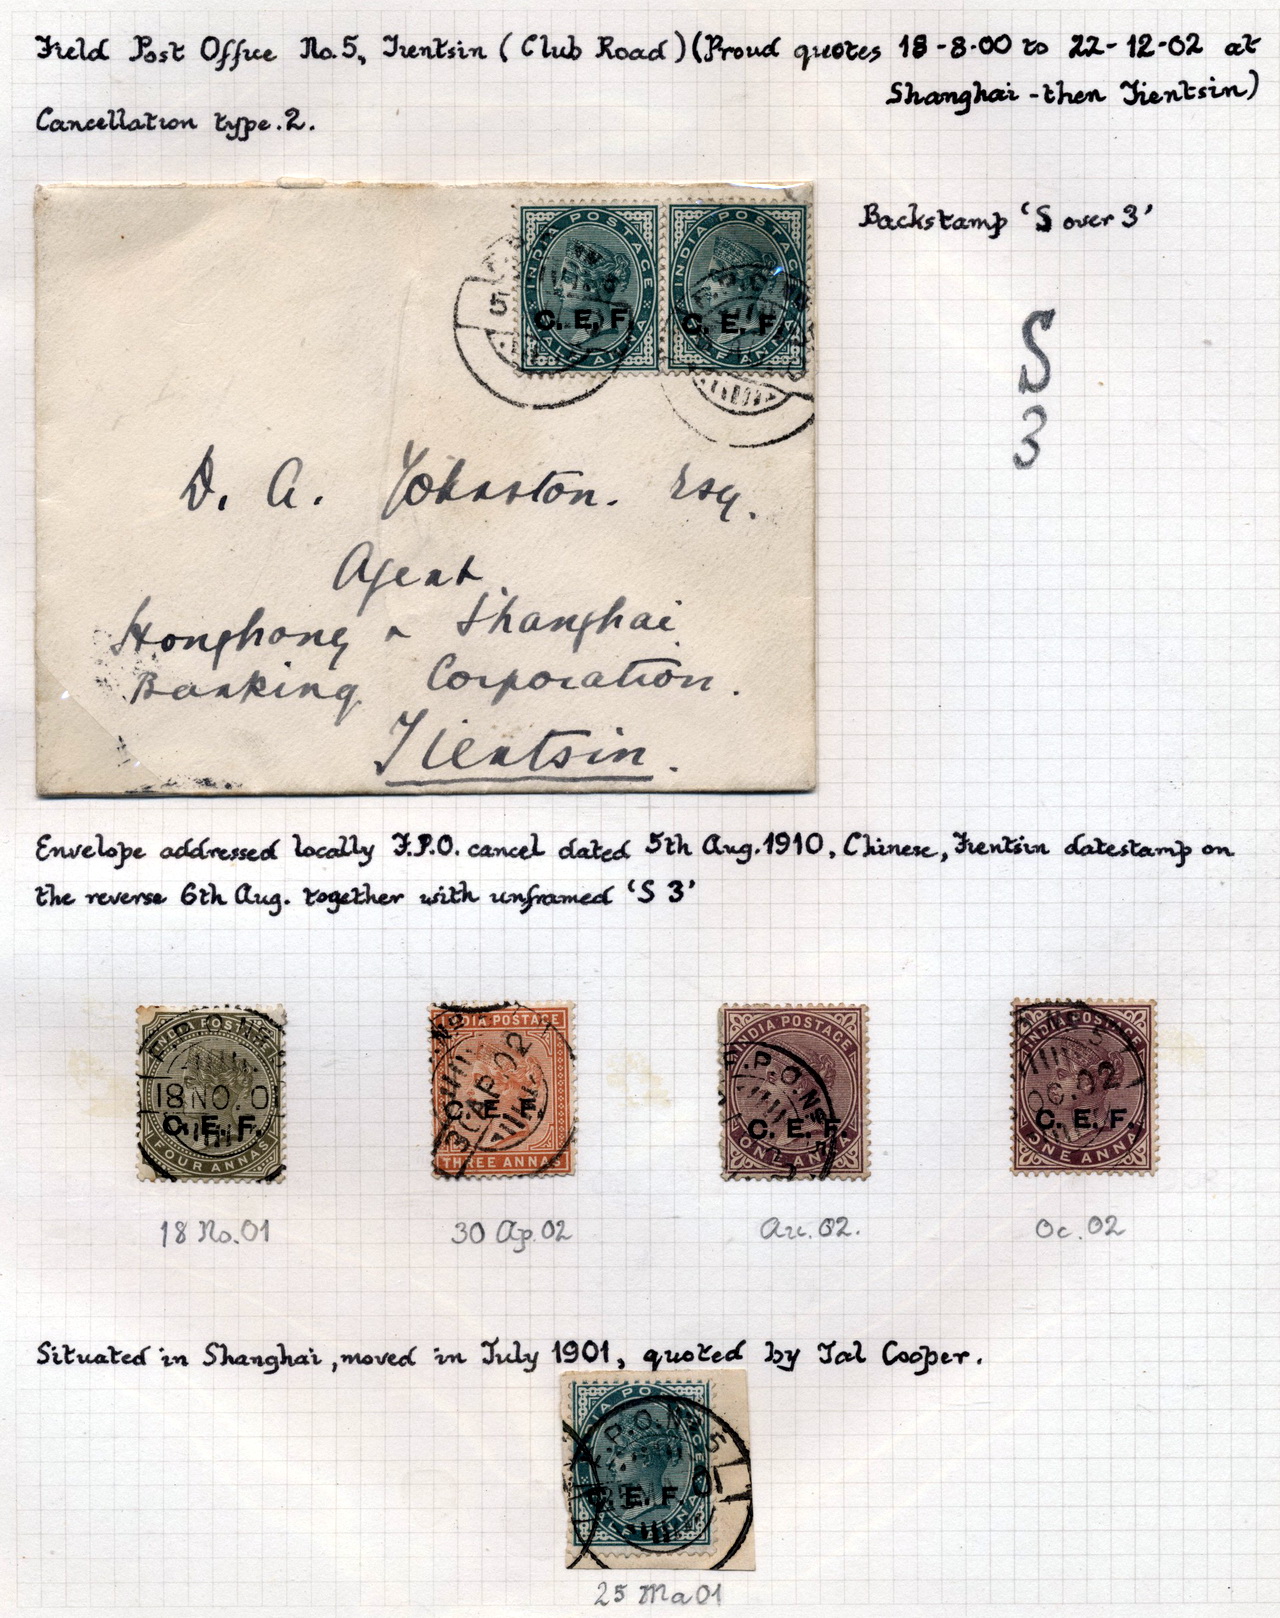 Field Post Office No. 5, Tientsin (Club Road) (Proud quotes 18-8-00 to 22-12-02 at
Shanghai - then Tientsin)
Cancellation type. 2.
Backstamp 'S over 3'
INDIA POSTAGE
C. E. F.
HALF ANNA
INDIA POSTAGE
C. E. F.
HALF ANNA
5
S
3
D. A. Johnston. Esq.
Agent
Hongkong & Shanghai
Banking Corporation.
Tientsin.
Envelope addressed locally F.P.O. cancel dated 5th Aug. 1910, Chinese, Tientsin datestamp on
the reverse 6th Aug. together with unframed 'S 3'
INDIA POSTAGE
18 NO. 0
C. E. F.
FOUR ANNAS
INDIA POSTAGE
30 AP. 02
C. E. F.
THREE ANNAS
INDIA POSTAGE
F.P.O. No
C. E. F.
ONE ANNA
INDIA POSTAGE
No 5
OC. 02
C. E. F.
ONE ANNA
18 No. 01
30 Ap. 02
Au. 02.
Oc. 02
Situated in Shanghai, moved in July 1901, quoted by Tal Cooper.
F.P.O. No 5
01
C. E. F.
25 Ma 01